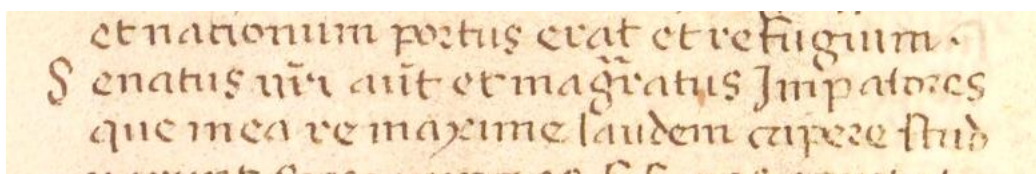 et nationum portus erat et refugium.
Senatus ur̃i aut̃ et magr̃atus Imp̃atores
que in ea re maxime laudem capere stud